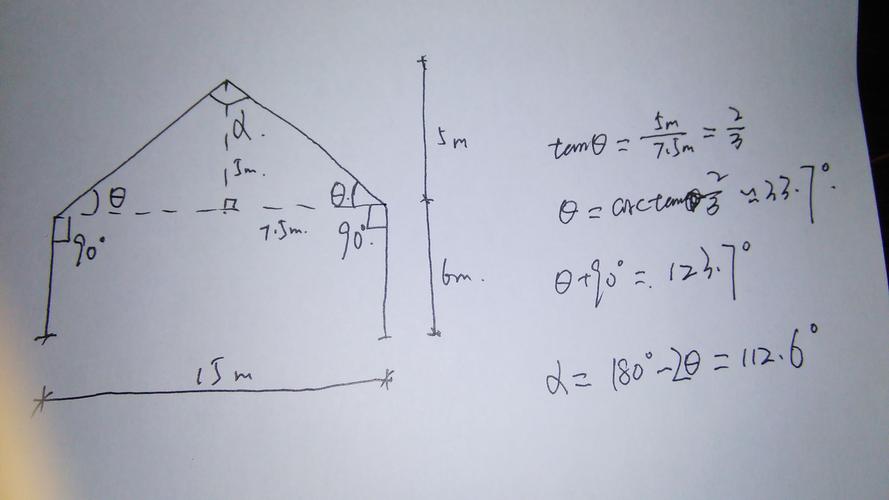 α.
5m.
θ
θ.
7.5m.
90°
90°.
5m
6m.
15m
tanθ = 5m/7.5m = 2/3
θ = arctan 2/3 ≈ 33.7°.
θ+90° = 123.7°
α = 180°-2θ = 112.6°